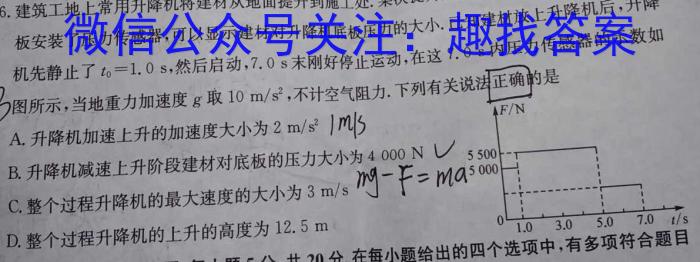 6.建筑工地上常用升降机将建材从地面提升到施工处.
微信公众号关注：趣找答案
建材放上升降机后,升降
板安装了压力传感器,可以显示建材对升降机底板压力的大小.
机先静止了 t₀=1.0 s,然后启动,7.0 s 末刚好停止运动,在这 7.0 s 内压力传感器的示数如
图所示,当地重力加速度 g 取 10 m/s²,不计空气阻力.下列有关说法正确的是
A.升降机加速上升的加速度大小为 2 m/s² 1m/s
B.升降机减速上升阶段建材对底板的压力大小为 4 000 N
C.整个过程升降机的最大速度的大小为 3 m/s mg-F=ma
D.整个过程升降机的上升的高度为 12.5 m
F/N
5 500
5 000
0 1.0 3.0 5.0 7.0 t/s
5分,共20分.在每小题给出的四个选项中,有多项符合题目